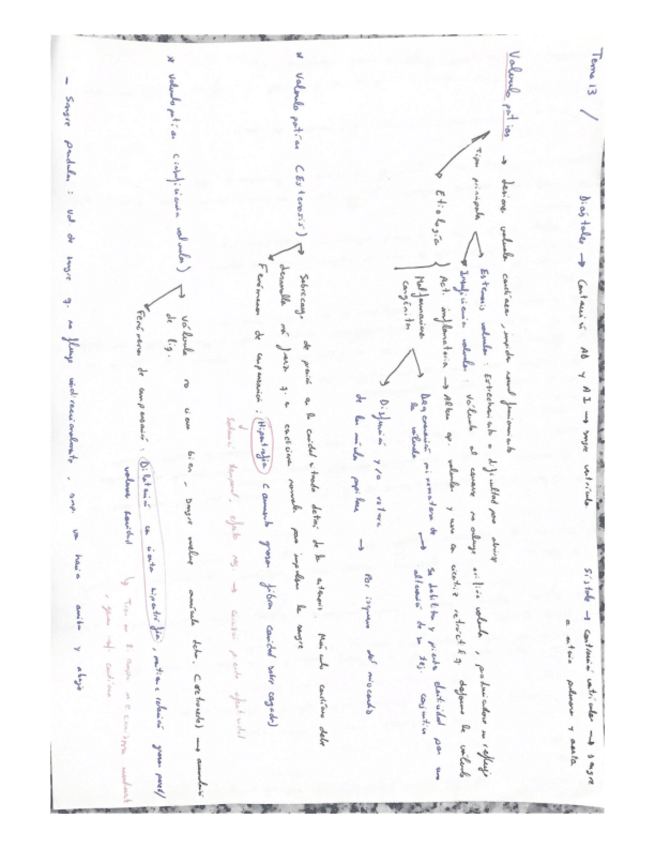 Tema 13 /
Diástole → Contracción AD y AI → sangre ventrículo
Sístole → Contracción ventrículos → Sangre
a arteria pulmonar y aorta
Valvulopatías → lesiones valvulas cardiacas, impiden normal funcionamiento
Tipos principales
Estenosis valvular: Estrechamiento o dificultad para abrirse
Insuficiencia valvular: válvula al cerrarse no orificio valvular, produciendose un reflujo
Etiología
Act. inflamatoria → Altera ap. valvular y una cicatriz retráctil q. deforma la válvula
Malformaciones
congénitas
Degeneración mixomatosa de
la válvula → Se debilita y pierde elasticidad por una
alteración de su tej. conjuntivo
Disfunción y/o rotura
de los músculos papilares → Por isquemia del miocardio
* Valvulopatías (Estenosis)
Sobrecarga de presión en la cavidad situada detrás de la estenosis. Músculo cardiaco debe
desarrolla más fuerza q. en condiciones normales para impulsar la sangre
Fenómenos de compensación: Hipertrofia (aumento grosor fibras cavidad sobrecargada)
* Valvulopatías (insuficiencia valvular)
Válvula no cierra bien, Sangre vuelve cavidad detrás. (retrógrado) →
de liq.
Fenómenos de compensación: Dilatación con cierta hipertrofia,
volumen cavidad
- Sangre pendular: Vol de sangre q. no fluye unidireccionalmente, sino va hacia arriba y abajo